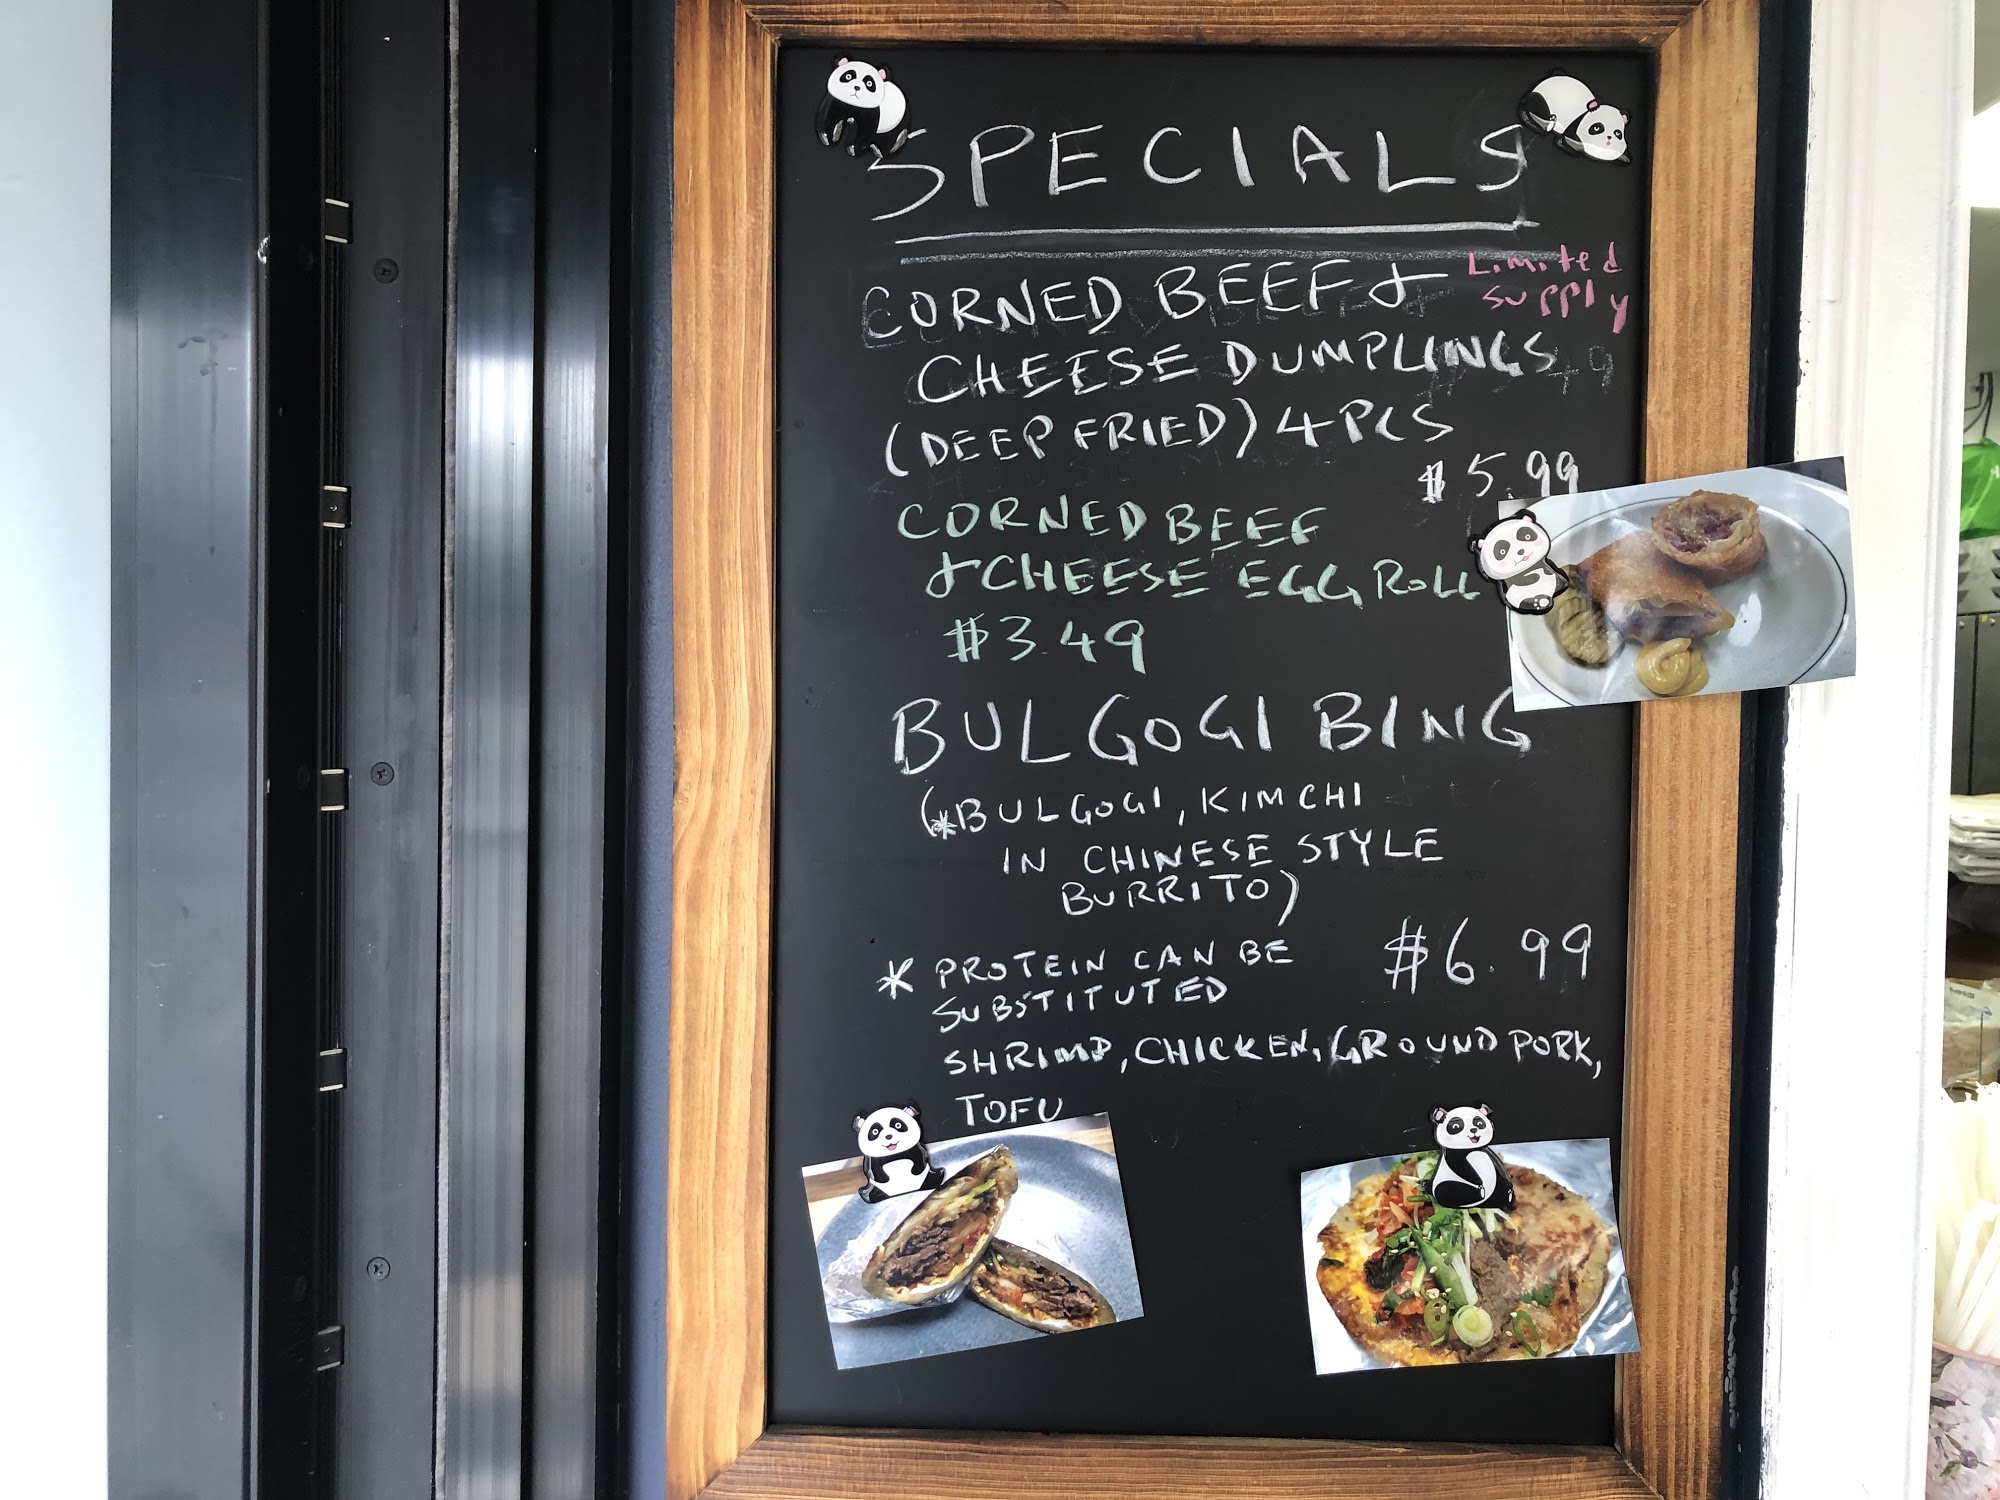 SPECIALS
CORNED BEEF &
Limited
supply
CHEESE DUMPLINGS
(DEEP FRIED) 4 PCS
$5.99
CORNED BEEF
& CHEESE EGG ROLL
$3.49
BULGOGI BING
(*BULGOGI, KIMCHI
IN CHINESE STYLE
BURRITO)
* PROTEIN CAN BE
SUBSTITUTED
$6.99
SHRIMP, CHICKEN, GROUND PORK,
TOFU